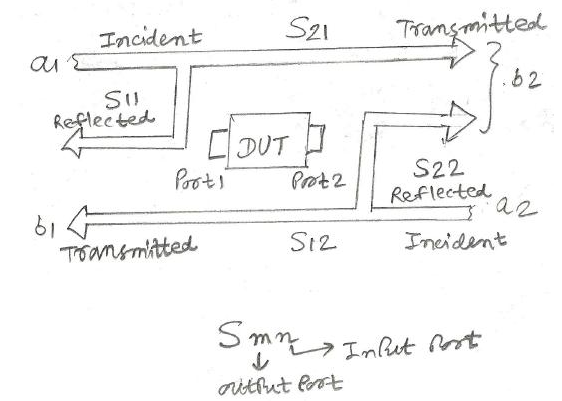 Incident S21 Transmitted
a1
b2
S11
Reflected
DUT
S22
Port1 Port2
Reflected
a2
b1
Transmitted S12 Incident
Smn
Input Port
output Port